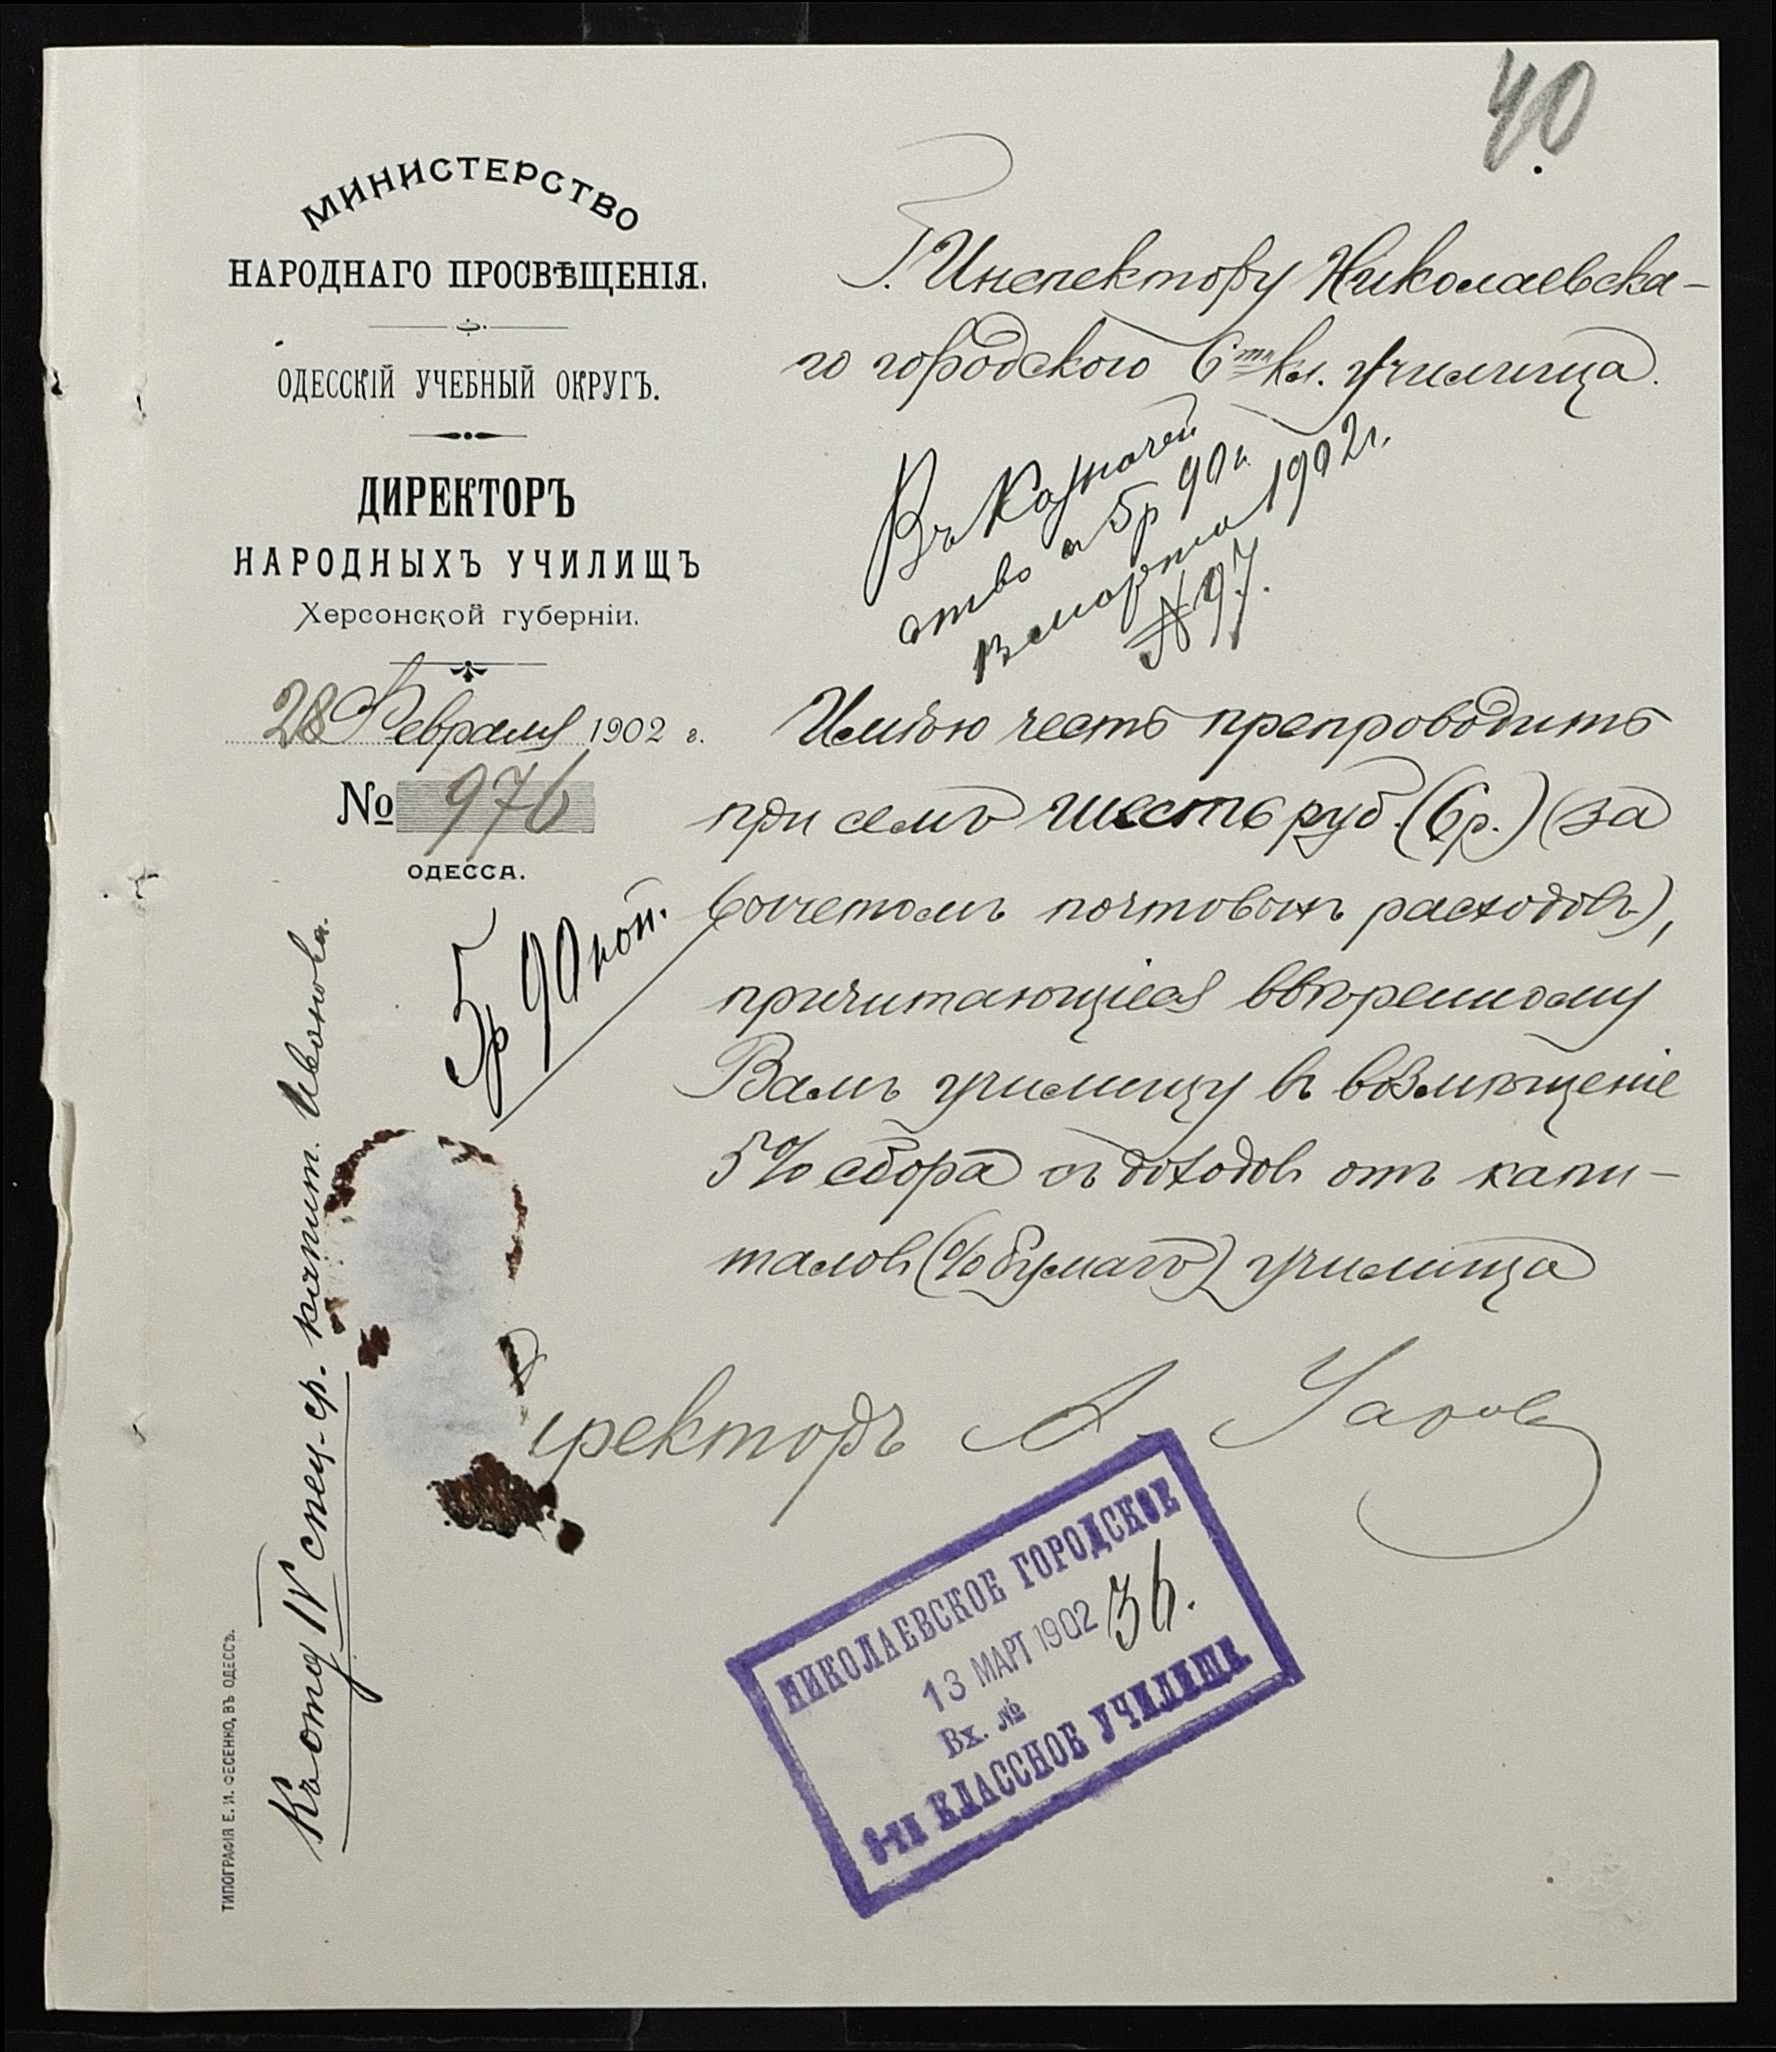 40
МИНИСТЕРСТВО
НАРОДНАГО ПРОСВѢЩЕНІЯ.
ОДЕССКІЙ УЧЕБНЫЙ ОКРУГЪ.
ДИРЕКТОРЪ
НАРОДНЫХЪ УЧИЛИЩЪ
Херсонской губерніи.
28 Февраля 1902 г.
№ 976
ОДЕССА.
Г. Инспектору Николаевска-
го городского 6ти кл. училища.
Въ Казначей
ство 5р 90 к.
13 марта 1902 г.
№ 97.
Имѣю честь препроводить
при семъ шесть руб. (6 р.) (за
вычетомъ почтовыхъ расходовъ),
причитающіеся ввѣренному
Вамъ училищу въ возмѣщеніе
5% сбора съ доходовъ отъ капи-
таловъ (% бумагъ) училища
5р 90 коп.
Директоръ А.
Къ отд IV спец. ср. капит. Иванова.
НИКОЛАЕВСКОЕ ГОРОДСКОЕ
13 МАРТ 1902
Вх. № 36.
6-ти КЛАССНОЕ УЧИЛИЩЕ
ТИПОГРАФІЯ Е. И. ФЕСЕНКО, ВЪ ОДЕССѢ.